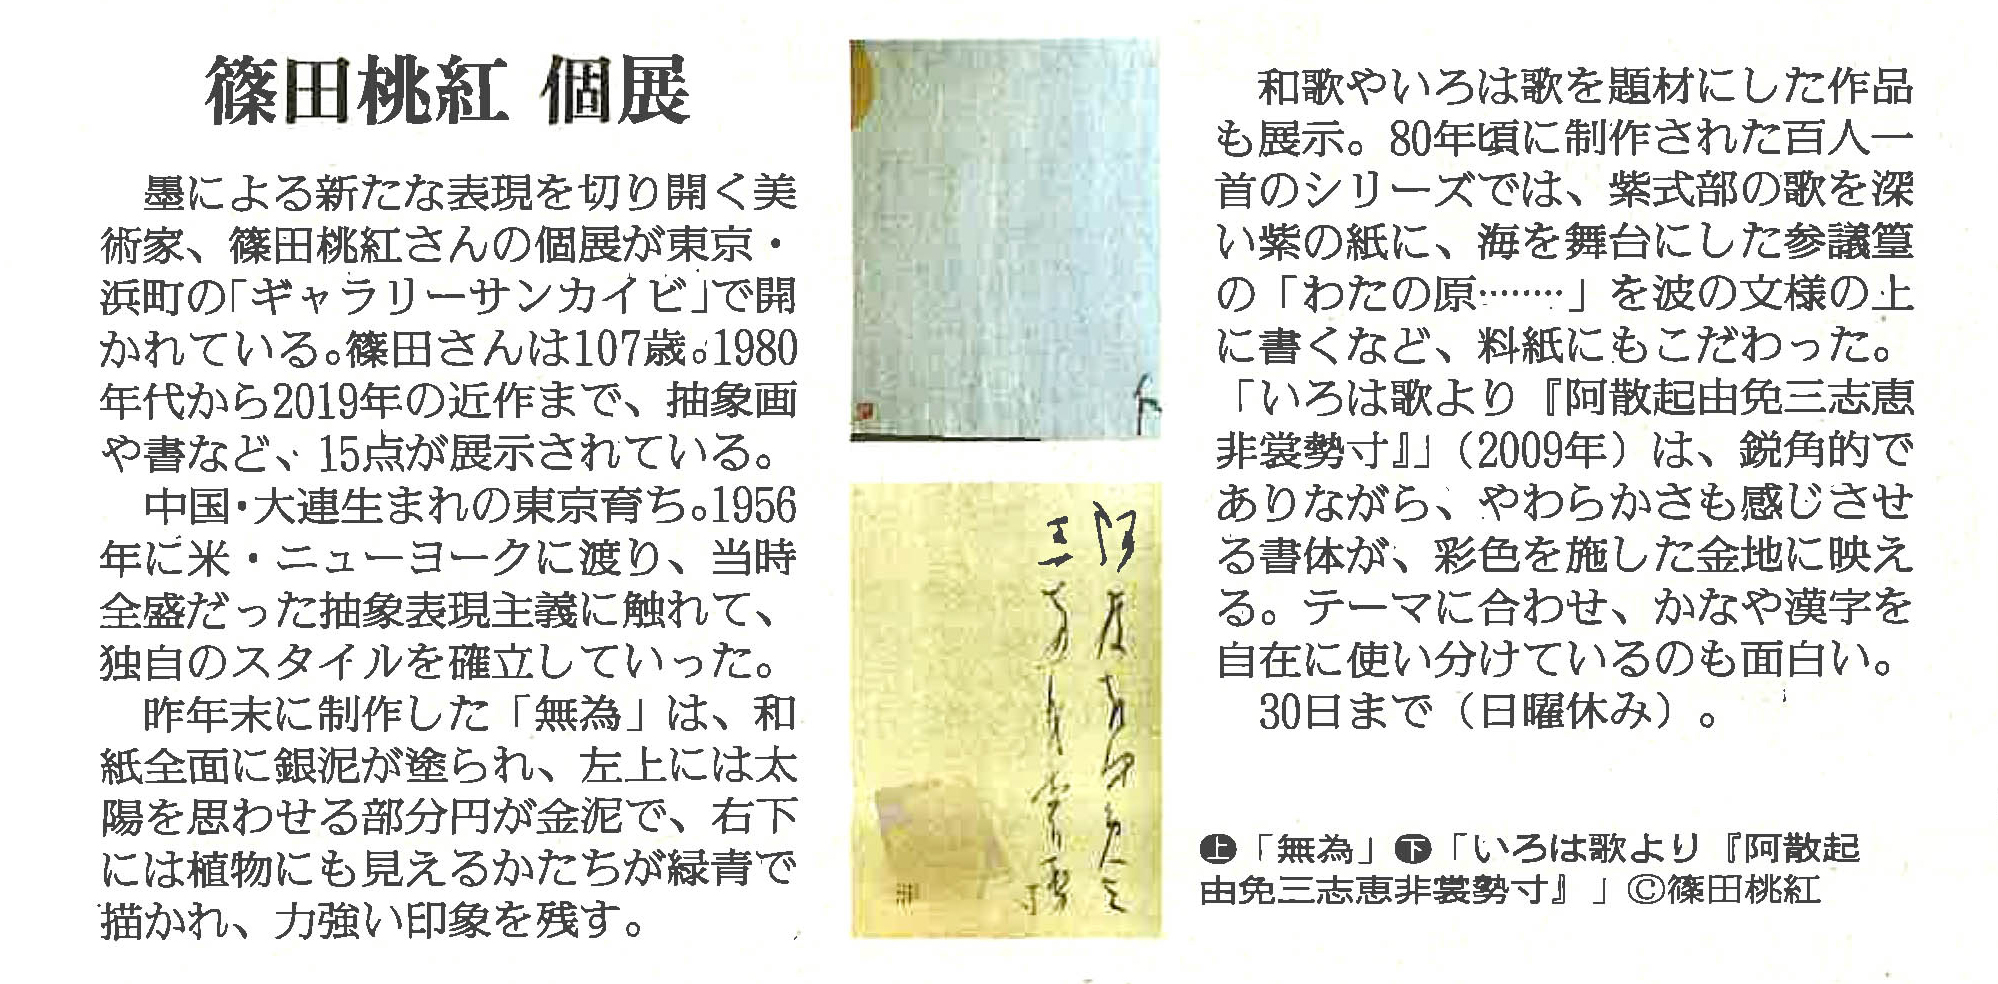 篠田桃紅 個展
墨による新たな表現を切り開く美
術家、篠田桃紅さんの個展が東京・
浜町の「ギャラリーサンカイビ」で開
かれている。篠田さんは107歳。1980
年代から2019年の近作まで、抽象画
や書など、15点が展示されている。
中国・大連生まれの東京育ち。1956
年に米・ニューヨークに渡り、当時
全盛だった抽象表現主義に触れて、
独自のスタイルを確立していった。
昨年末に制作した「無為」は、和
紙全面に銀泥が塗られ、左上には太
陽を思わせる部分円が金泥で、右下
には植物にも見えるかたちが緑青で
描かれ、力強い印象を残す。
和歌やいろは歌を題材にした作品
も展示。80年頃に制作された百人一
首のシリーズでは、紫式部の歌を深
い紫の紙に、海を舞台にした参議篁
の「わたの原………」を波の文様の上
に書くなど、料紙にもこだわった。
「いろは歌より『阿散起由免三志恵
非裳勢寸』」（2009年）は、鋭角的で
ありながら、やわらかさも感じさせ
る書体が、彩色を施した金地に映え
る。テーマに合わせ、かなや漢字を
自在に使い分けているのも面白い。
30日まで（日曜休み）。
上「無為」下「いろは歌より『阿散起
由免三志恵非裳勢寸』」©篠田桃紅